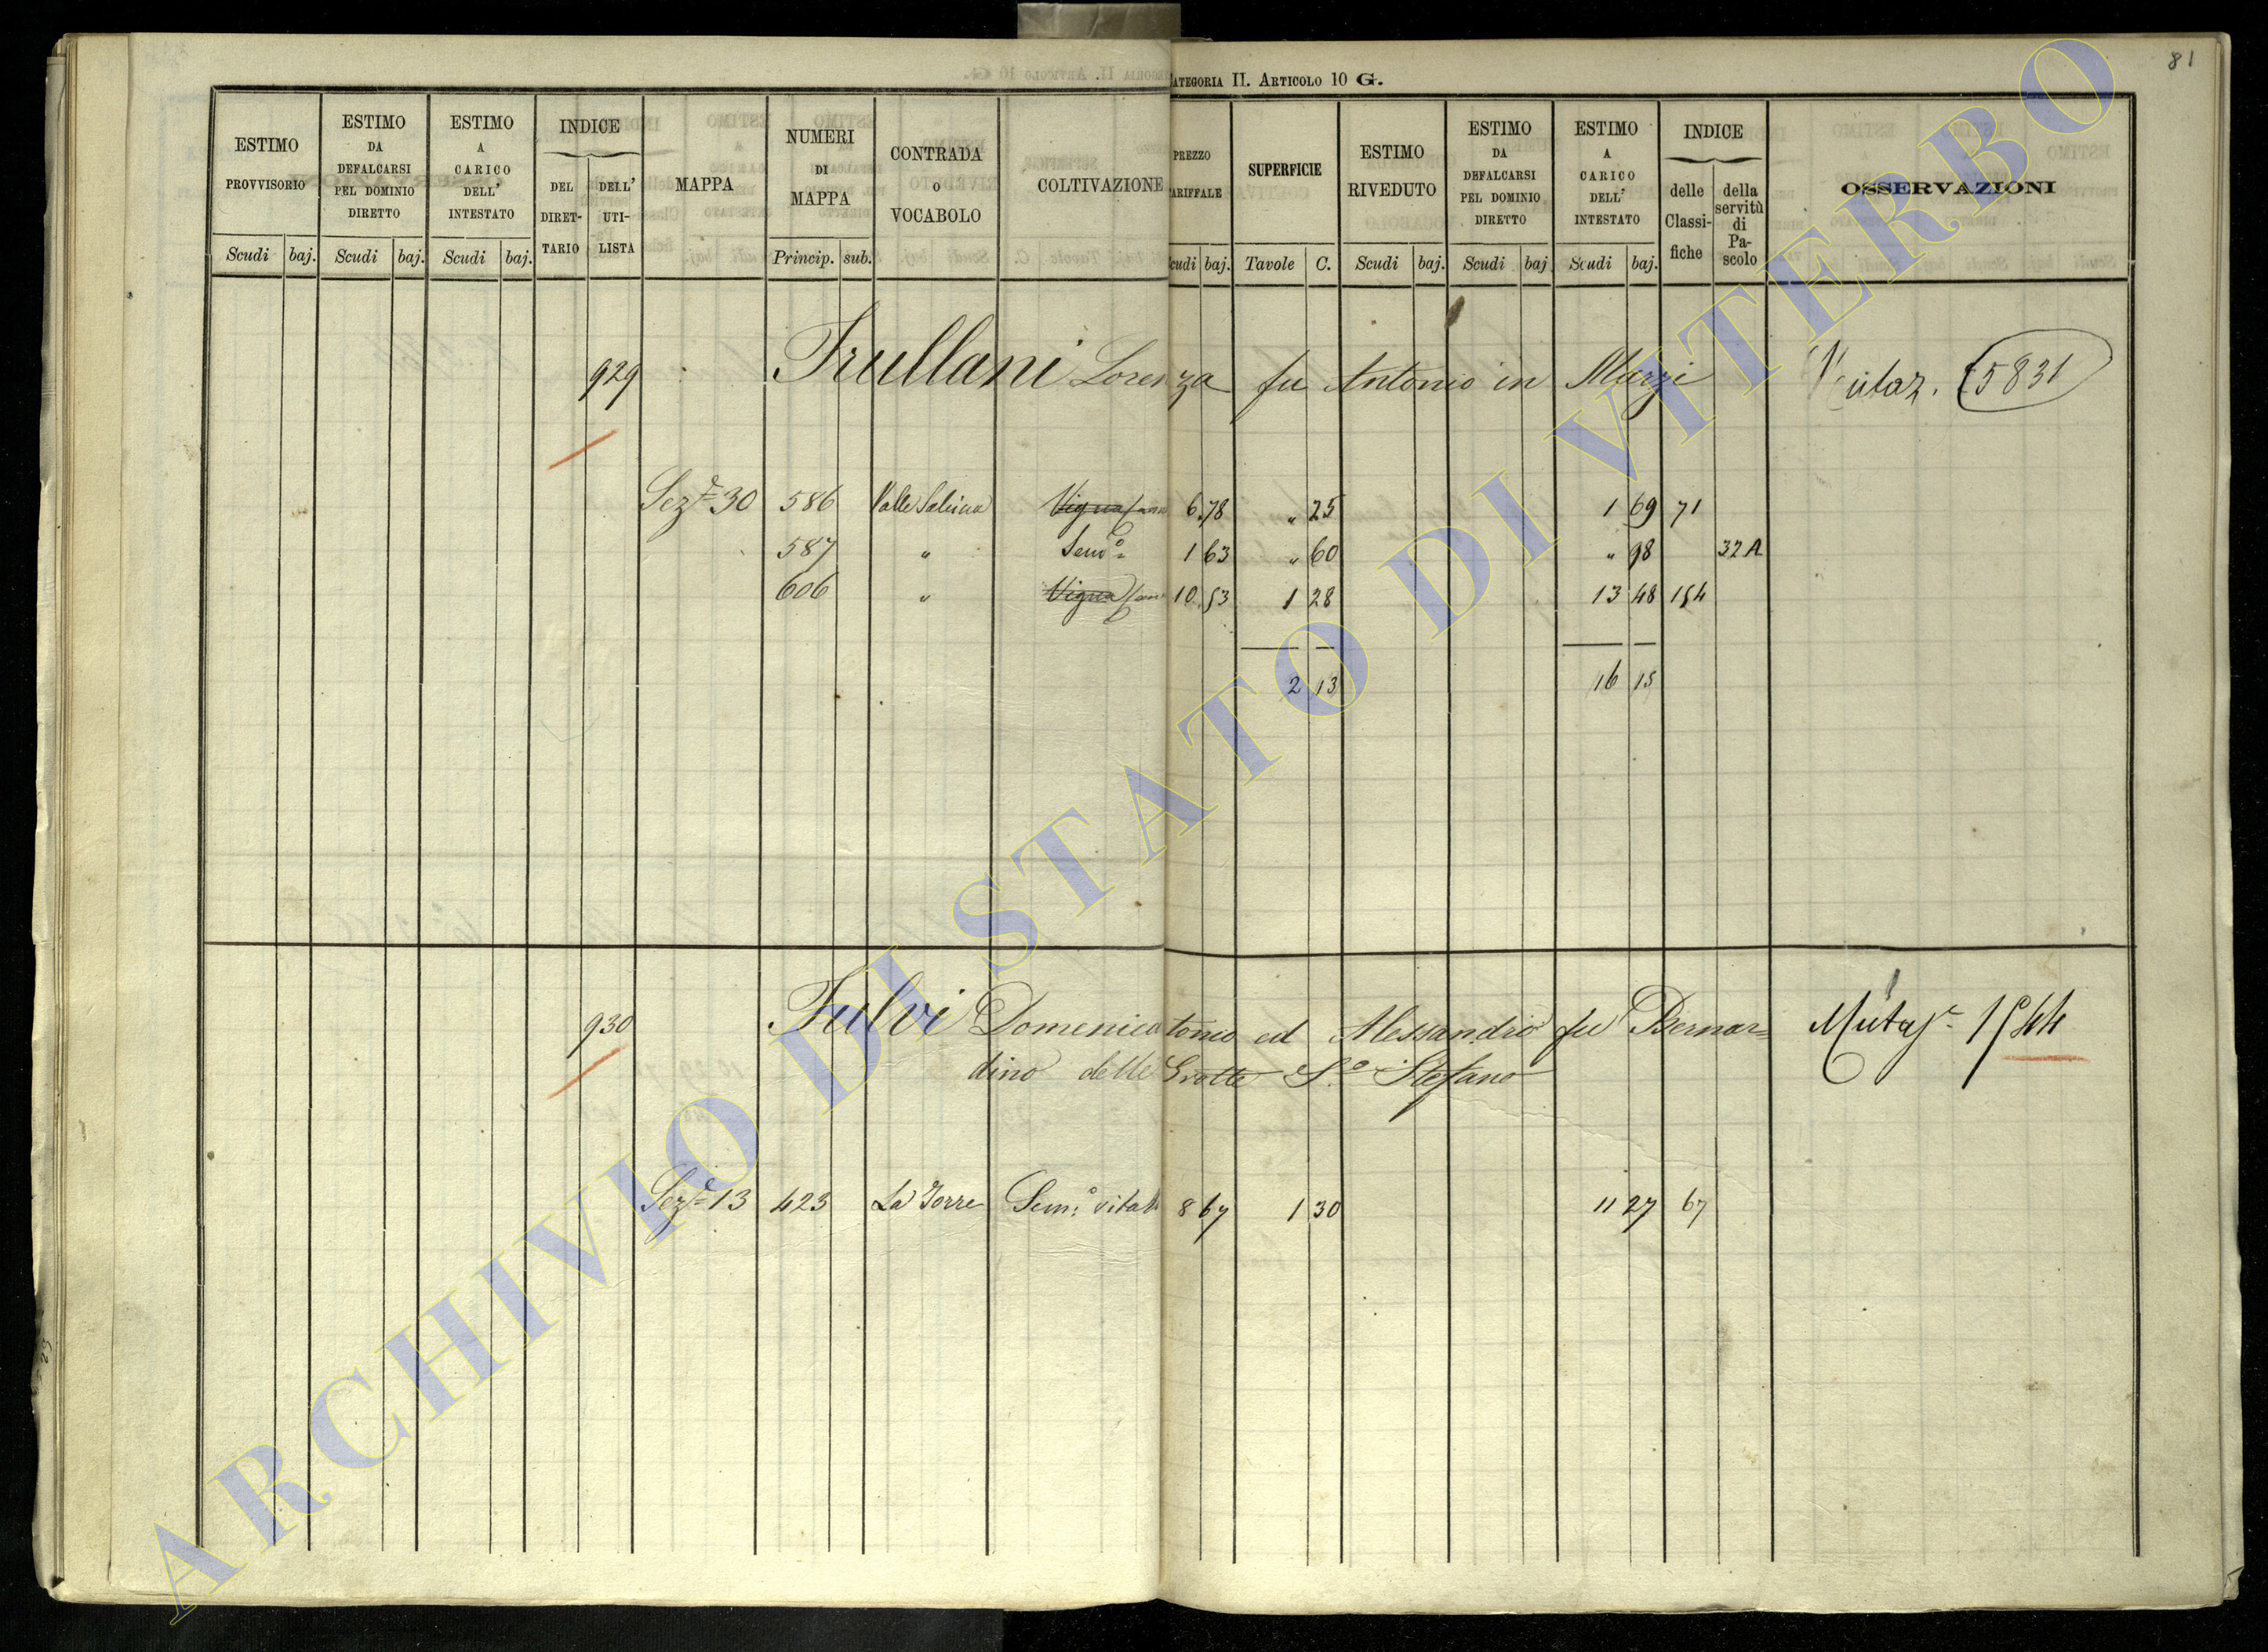 81
CATEGORIA II. ARTICOLO 10 G.
ESTIMO PROVVISORIO Scudi baj.
ESTIMO DA DEFALCARSI PEL DOMINIO DIRETTO Scudi baj.
ESTIMO A CARICO DELL' INTESTATO Scudi baj.
INDICE DEL DIRET-TARIO DELL' UTI-LISTA
MAPPA
NUMERI DI MAPPA Princip. sub.
CONTRADA O VOCABOLO
COLTIVAZIONE
PREZZO TARIFFALE Scudi baj.
SUPERFICIE Tavole C.
ESTIMO RIVEDUTO Scudi baj.
ESTIMO DA DEFALCARSI PEL DOMINIO DIRETTO Scudi baj.
ESTIMO A CARICO DELL' INTESTATO Scudi baj.
INDICE delle Classi-fiche della servitù di Pa-scolo
OSSERVAZIONI
929 Frullani Lorenza fu Antonio in Marzi 5831
Sez.e 30 586 Valle Salicia Vigna 6.78 " 25 1 69 71
587 " Sem.o 1 63 " 60 " 98 32 A
606 " Vigna 10.53 1 28 13 48 154
2 13 16 15
930 Fulvi Domenicantonio ed Alessandro fu Bernar=
dino delle Grotte S.o Stefano
Sez.e 13 423 La Torre Sem.o vitato 8 67 1 30 11 27 67
ARCHIVIO DI STATO DI VITERBO